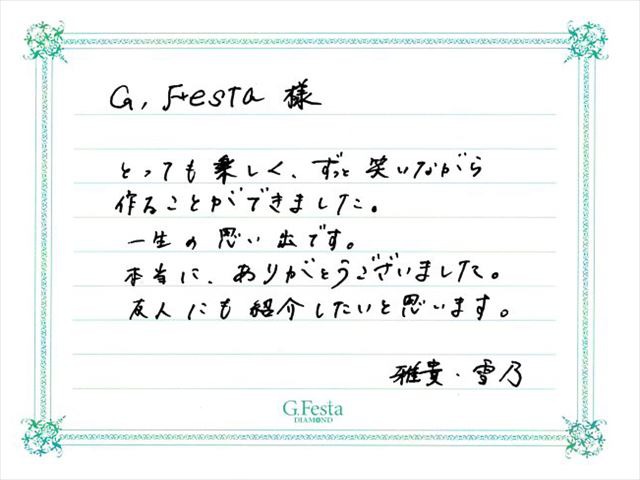 G.Festa 様
とっても楽しく、ずっと笑いながら
作ることができました。
一生の思い出です。
本当に、ありがとうございました。
友人にも紹介したいと思います。
雅貴・雪乃
G.Festa
DIAMOND